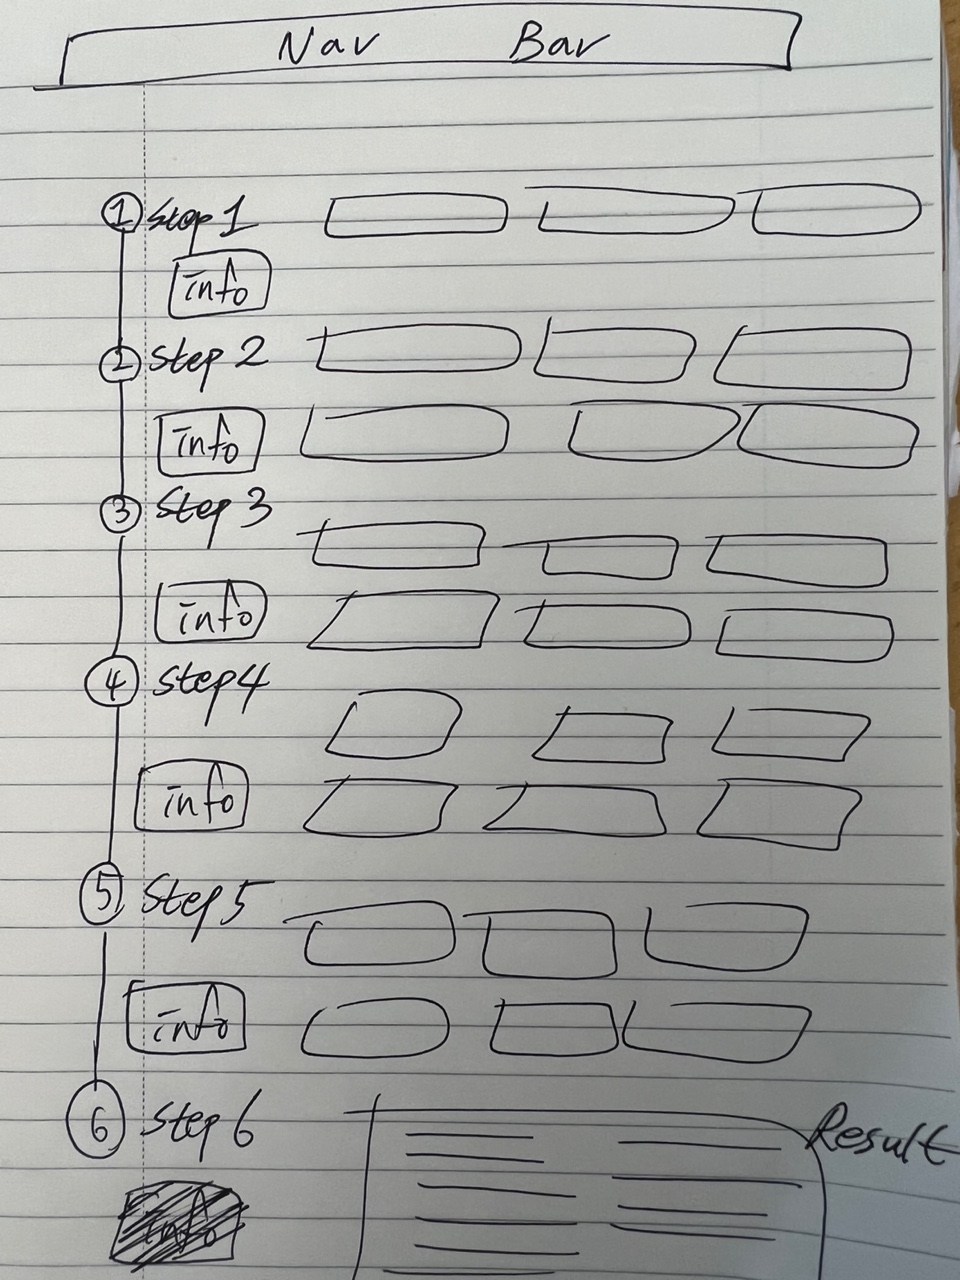 Nav Bar
1 Step 1
info
2 Step 2
info
3 Step 3
info
4 Step 4
info
5 Step 5
info
6 Step 6
Result
info